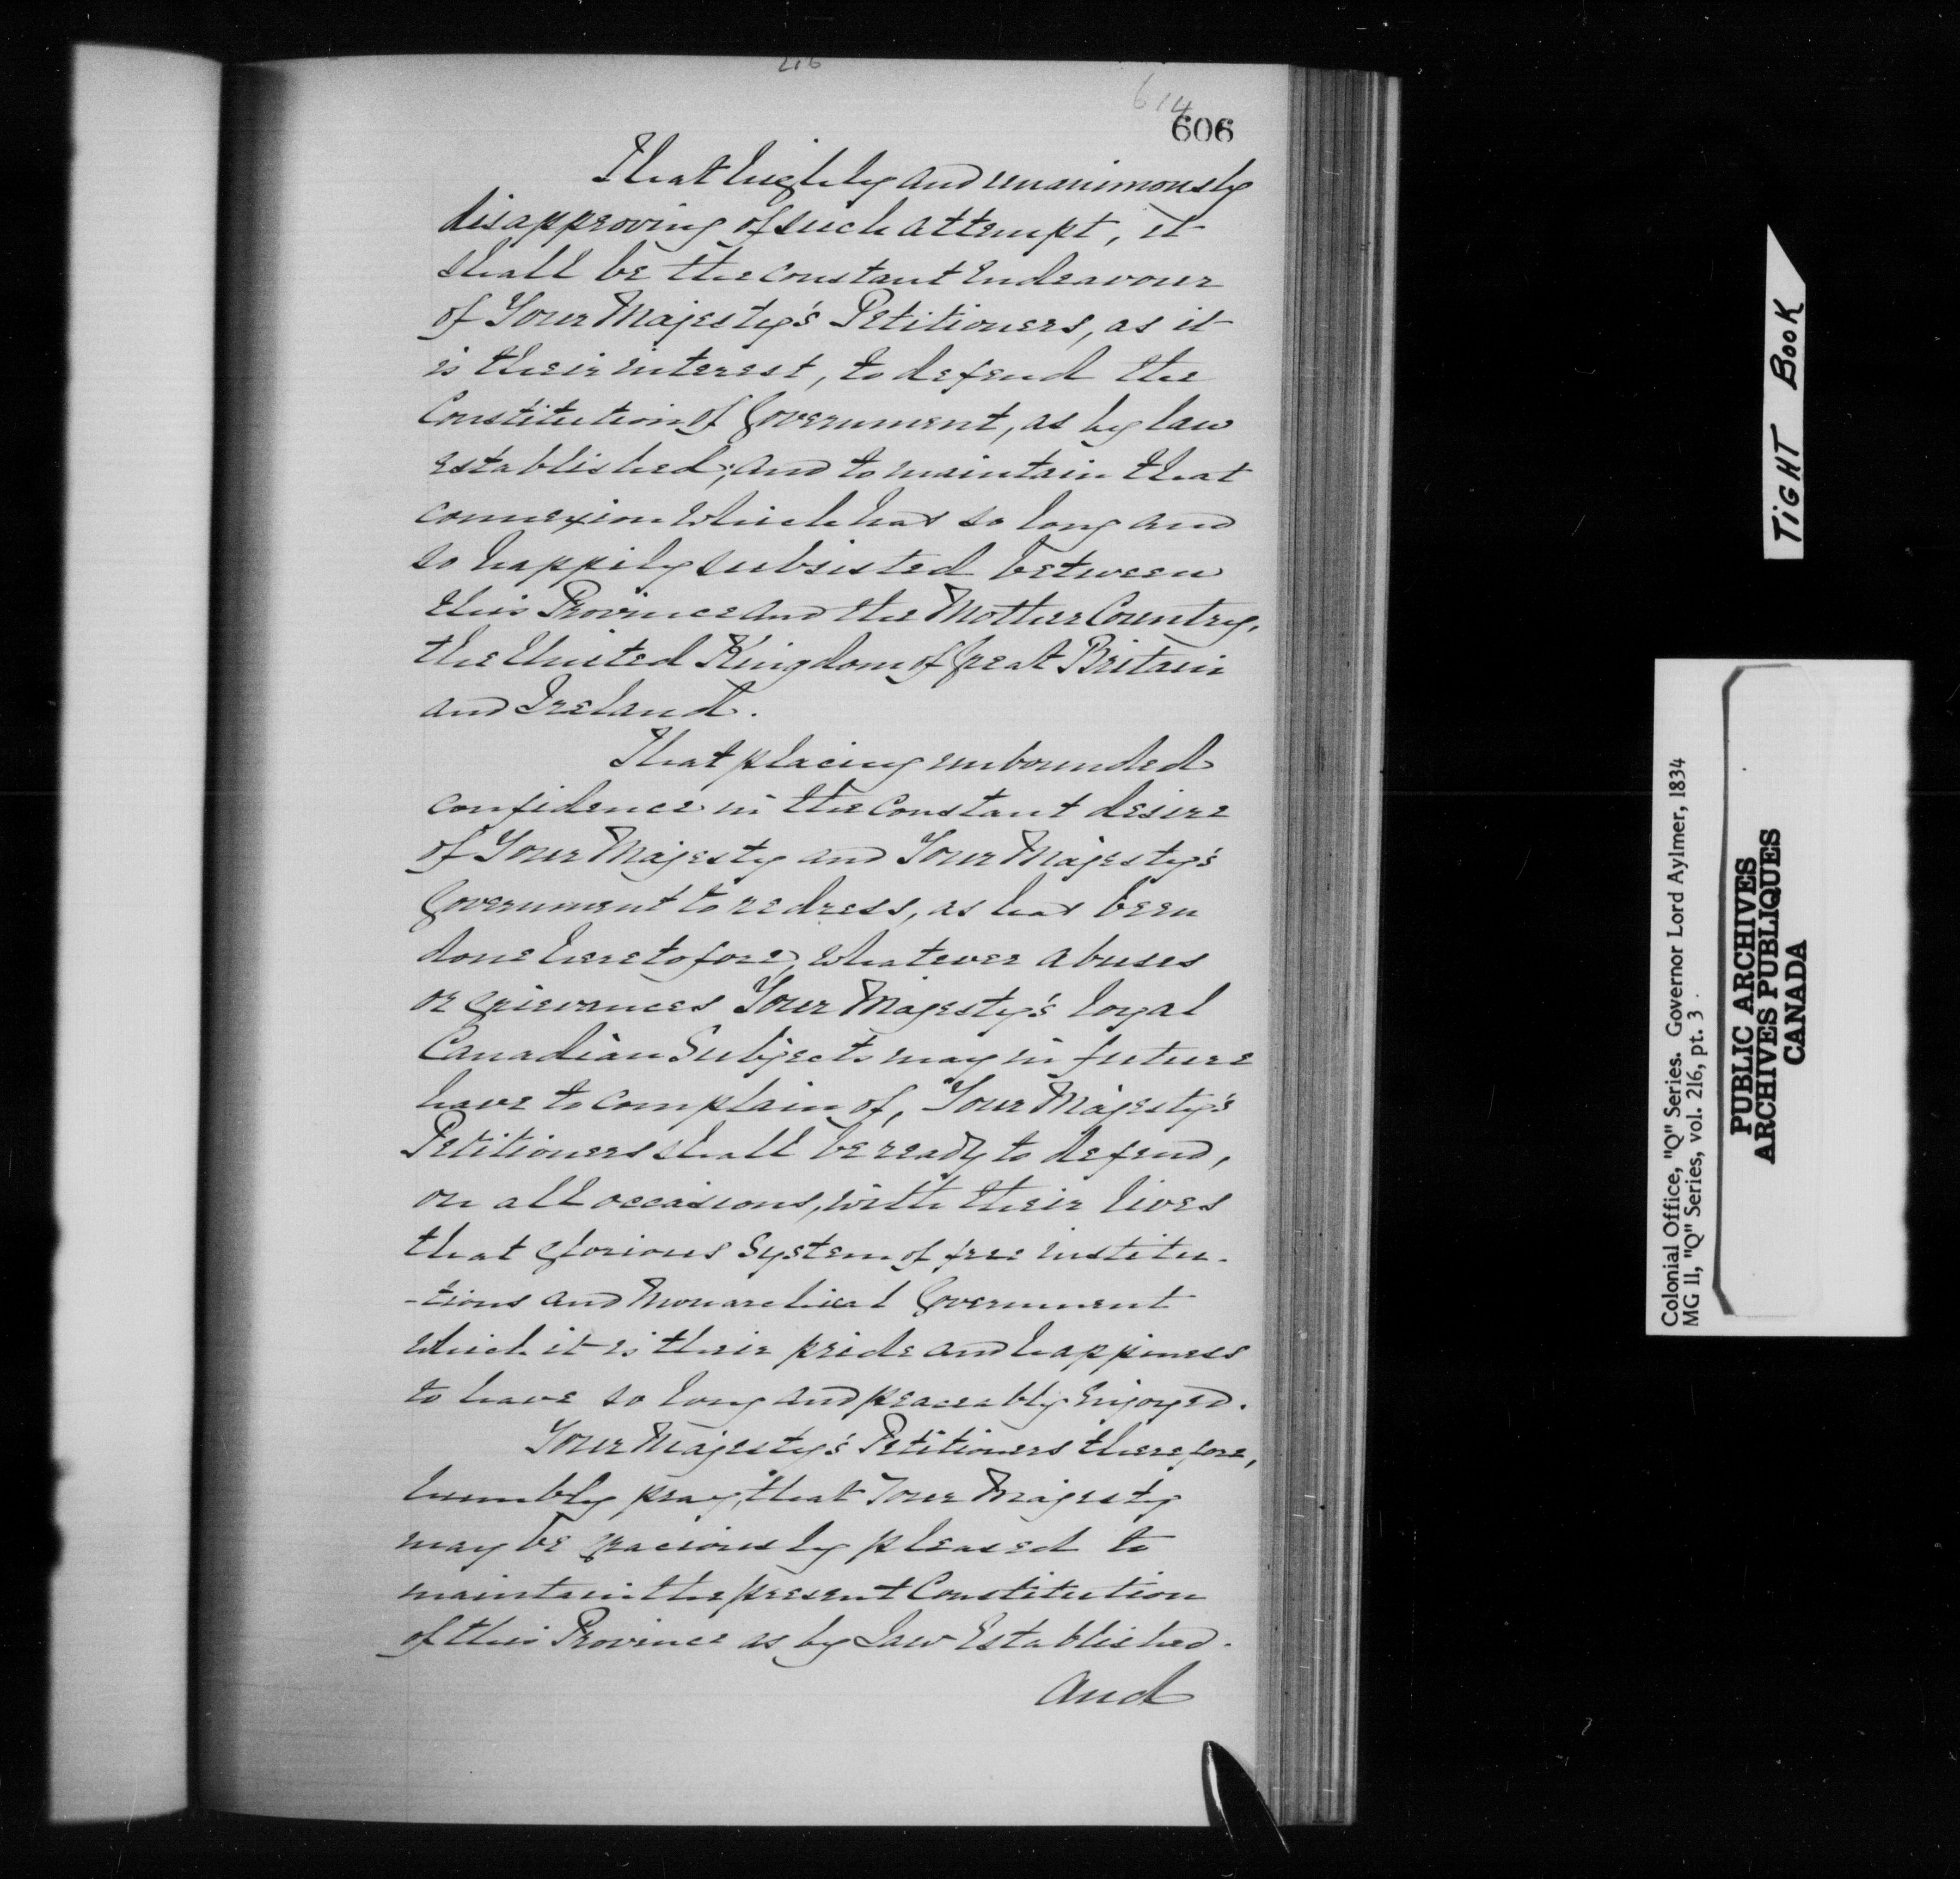 216
614
606
That highly and unanimously
disapproving of such attempt, it
shall be the constant Endeavour
of Your Majesty's Petitioners, as it
is their interest, to defend the
Constitution of Government, as by law
established; and to maintain that
connexion which has so long and
so happily subsisted between
this Province and the Mother Country,
the United Kingdom of Great Britain
and Ireland.
That placing unbounded
confidence in the constant desire
of Your Majesty and Your Majesty's
Government to redress, as has been
done heretofore, whatever abuses
or grievances Your Majesty's loyal
Canadian Subjects may in future
have to complain of, Your Majesty's
Petitioners shall be ready to defend,
on all occasions, with their lives
that glorious System of free institu-
-tions and Monarchical Government
which it is their pride and happiness
to have so long and peaceably Enjoyed.
Your Majesty's Petitioners therefore,
humbly pray, that Your Majesty
may be graciously pleased to
maintain the present Constitution
of this Province as by Law Established.
and
TiGHT BOOK
Colonial Office, "Q" Series. Governor Lord Aylmer, 1834
MG 11, "Q" Series, vol. 216, pt. 3
PUBLIC ARCHIVES
ARCHIVES PUBLIQUES
CANADA